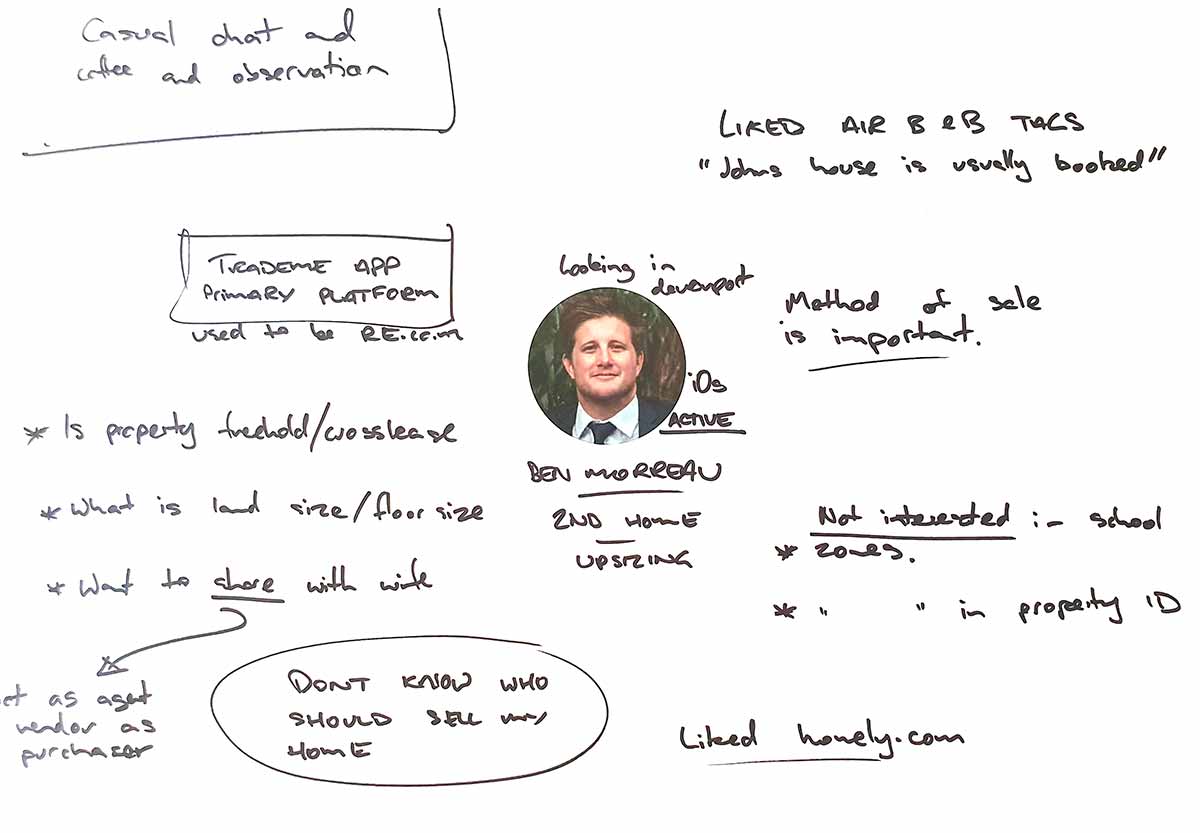 Casual chat and
coffee and observation
LIKED AIR B & B TAGS
"Johns house is usually booked"
TRADEME APP
PRIMARY PLATFORM
used to be RE.co.nz
Looking in
devenport
Method of sale
is important.
iOs
ACTIVE
* Is property freehold/crosslease
BEN MORREAU
* What is land size/floor size
2ND HOME
UPSIZING
Not interested in school
* zones.
* Want to share with wife
* " " in property ID
act as agent
vendor as
purchaser
DONT KNOW WHO
SHOULD SELL MY
HOME
Liked homely.com